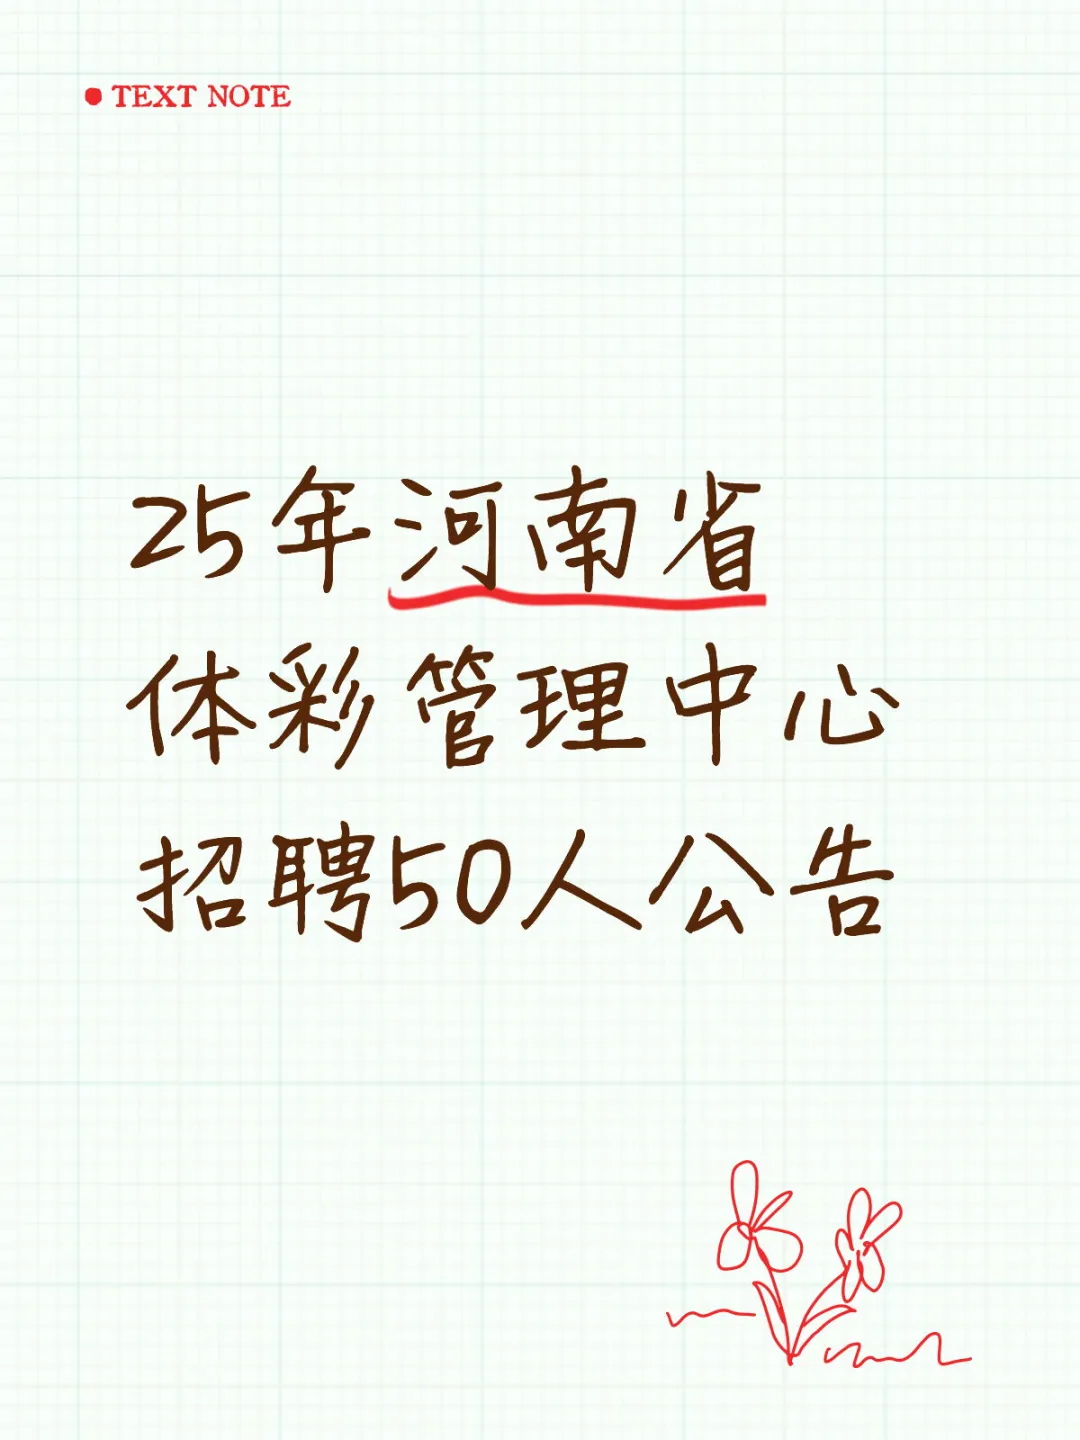 TEXT NOTE
25年河南省
体彩管理中心
招聘50人公告